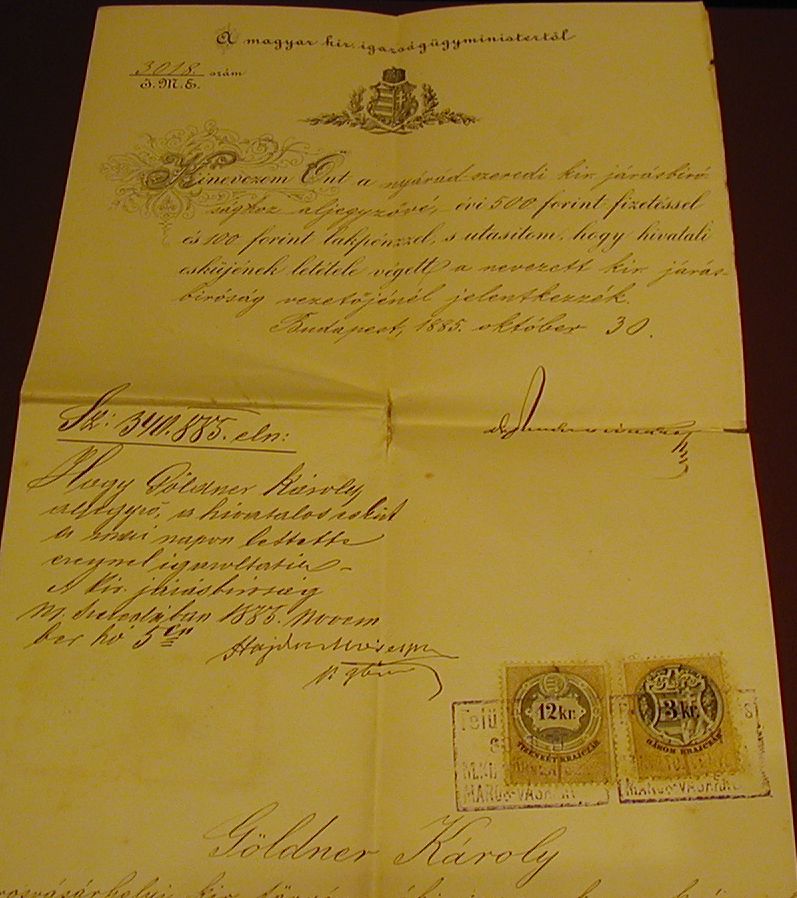 A magyar kir. igazságügyministertől
3018. szám
I.M.E.
Kinevezem Önt a nyárád szeredi kir. járásbíró
sághoz aljegyzővé, évi 500 forint fizetéssel
és 100 forint lakpénzzel, s utasítom, hogy hivatali
esküjének letétele végett a nevezett kir. járás-
bíróság vezetőjénél jelentkezzék.
Budapest, 1885. október 30.
Sz: 340.885. eln:
Hogy Göldner Károly
aljegyző, a hivatalos esküt
a mai napon letette
ezennel igazoltatik -
A kir. járásbíróság
Ny. Szeredában 1885. Novem
ber hó 5én
12 kr.
TIZENKÉT KRAJCZÁR
3 kr.
HÁROM KRAJCZÁR
Felü
MAROS-VÁSÁRH
MAROS-VÁSÁRH
Göldner Károly